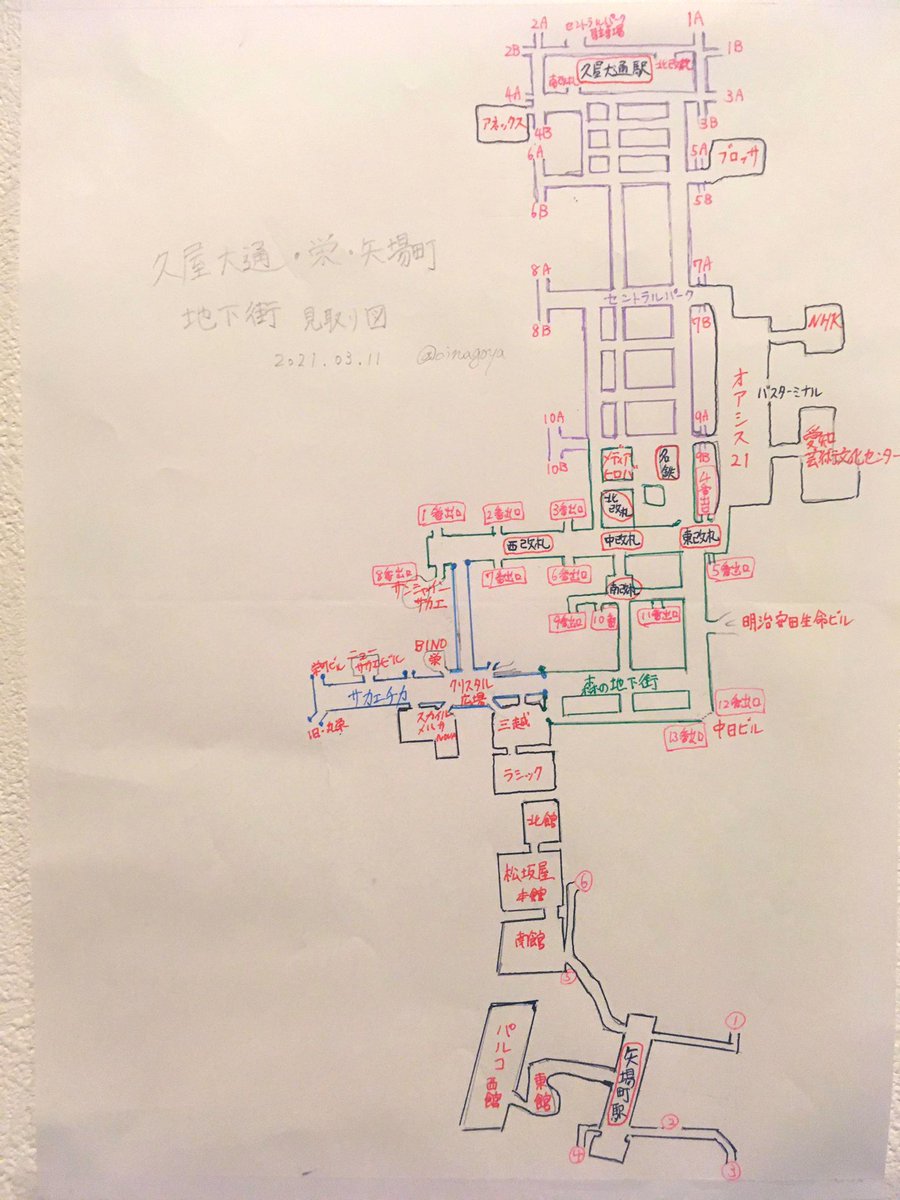 2A
セントラルパーク
駐車場
1A
2B
1B
久屋大通駅
北改札
南改札
4A
3A
アネックス
4B
3B
6A
5A
ブロッサ
6B
5B
久屋大通・栄・矢場町
地下街 見取り図
2021.03.11 @oinagoya
8A
7A
セントラルパーク
8B
7B
NHK
オアシス21
バスターミナル
10A
9A
愛知
芸術文化センター
10B
9B
メディア
名鉄
4番出口
北改札
1番出口
2番出口
3番出口
西改札
中改札
東改札
8番出口
7番出口
6番出口
5番出口
サンシャイン
サカエ
南改札
9番出口
10番
11番出口
明治安田生命ビル
BINO
栄
栄町ビル
ニュー
サカエビル
サカエチカ
クリスタル
広場
森の地下街
旧・丸栄
スカイル
メルサ
NOVA
三越
12番出口
13番出口
中日ビル
ラシック
北館
松坂屋
本館
⑥
南館
⑤
①
パルコ
西館
東館
矢場町駅
②
④
③